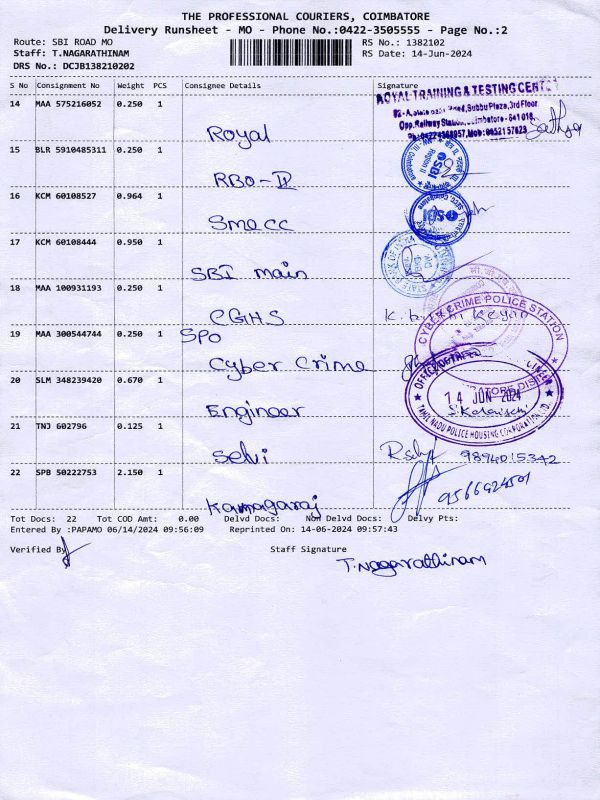 THE PROFESSIONAL COURIERS, COIMBATORE
Delivery Runsheet - MO - Phone No.:0422-3505555 - Page No.:2
Route: SBI ROAD MO RS No.: 1382102
Staff: T.NAGARATHINAM RS Date: 14-Jun-2024
DRS No.: DCJB138210202
S No Consignment No Weight PCS Consignee Details Signature
14 MAA 575216052 0.250 1
ROYAL TRAINING & TESTING CENTRE
Road, Subbu Plaza, 3rd Floor
Opp. Railway Station, Coimbatore - 641 018
Royal
15 BLR 5910485311 0.250 1
SBI
RBO-II
16 KCM 60108527 0.964 1
SBI
Smecc
17 KCM 60108444 0.950 1
SBI main
18 MAA 100931193 0.250 1
CGHS
19 MAA 300544744 0.250 1 SPO
CYBER CRIME POLICE STATION
Cyber Crime
20 SLM 348239420 0.670 1
OFFICE OF THE
14 JUN 2024
TAMIL NADU POLICE HOUSING CORPORATION LTD.
Engineer
21 TNJ 602796 0.125 1
Selvi 9894015342
22 SPB 50222753 2.150 1
9566424501
Kamagaraj
Tot Docs: 22 Tot COD Amt: 0.00 Delvd Docs: Non Delvd Docs: Delvy Pts:
Entered By :PAPAMO 06/14/2024 09:56:09 Reprinted On: 14-06-2024 09:57:43
Verified By Staff Signature
T.Nagarathinam